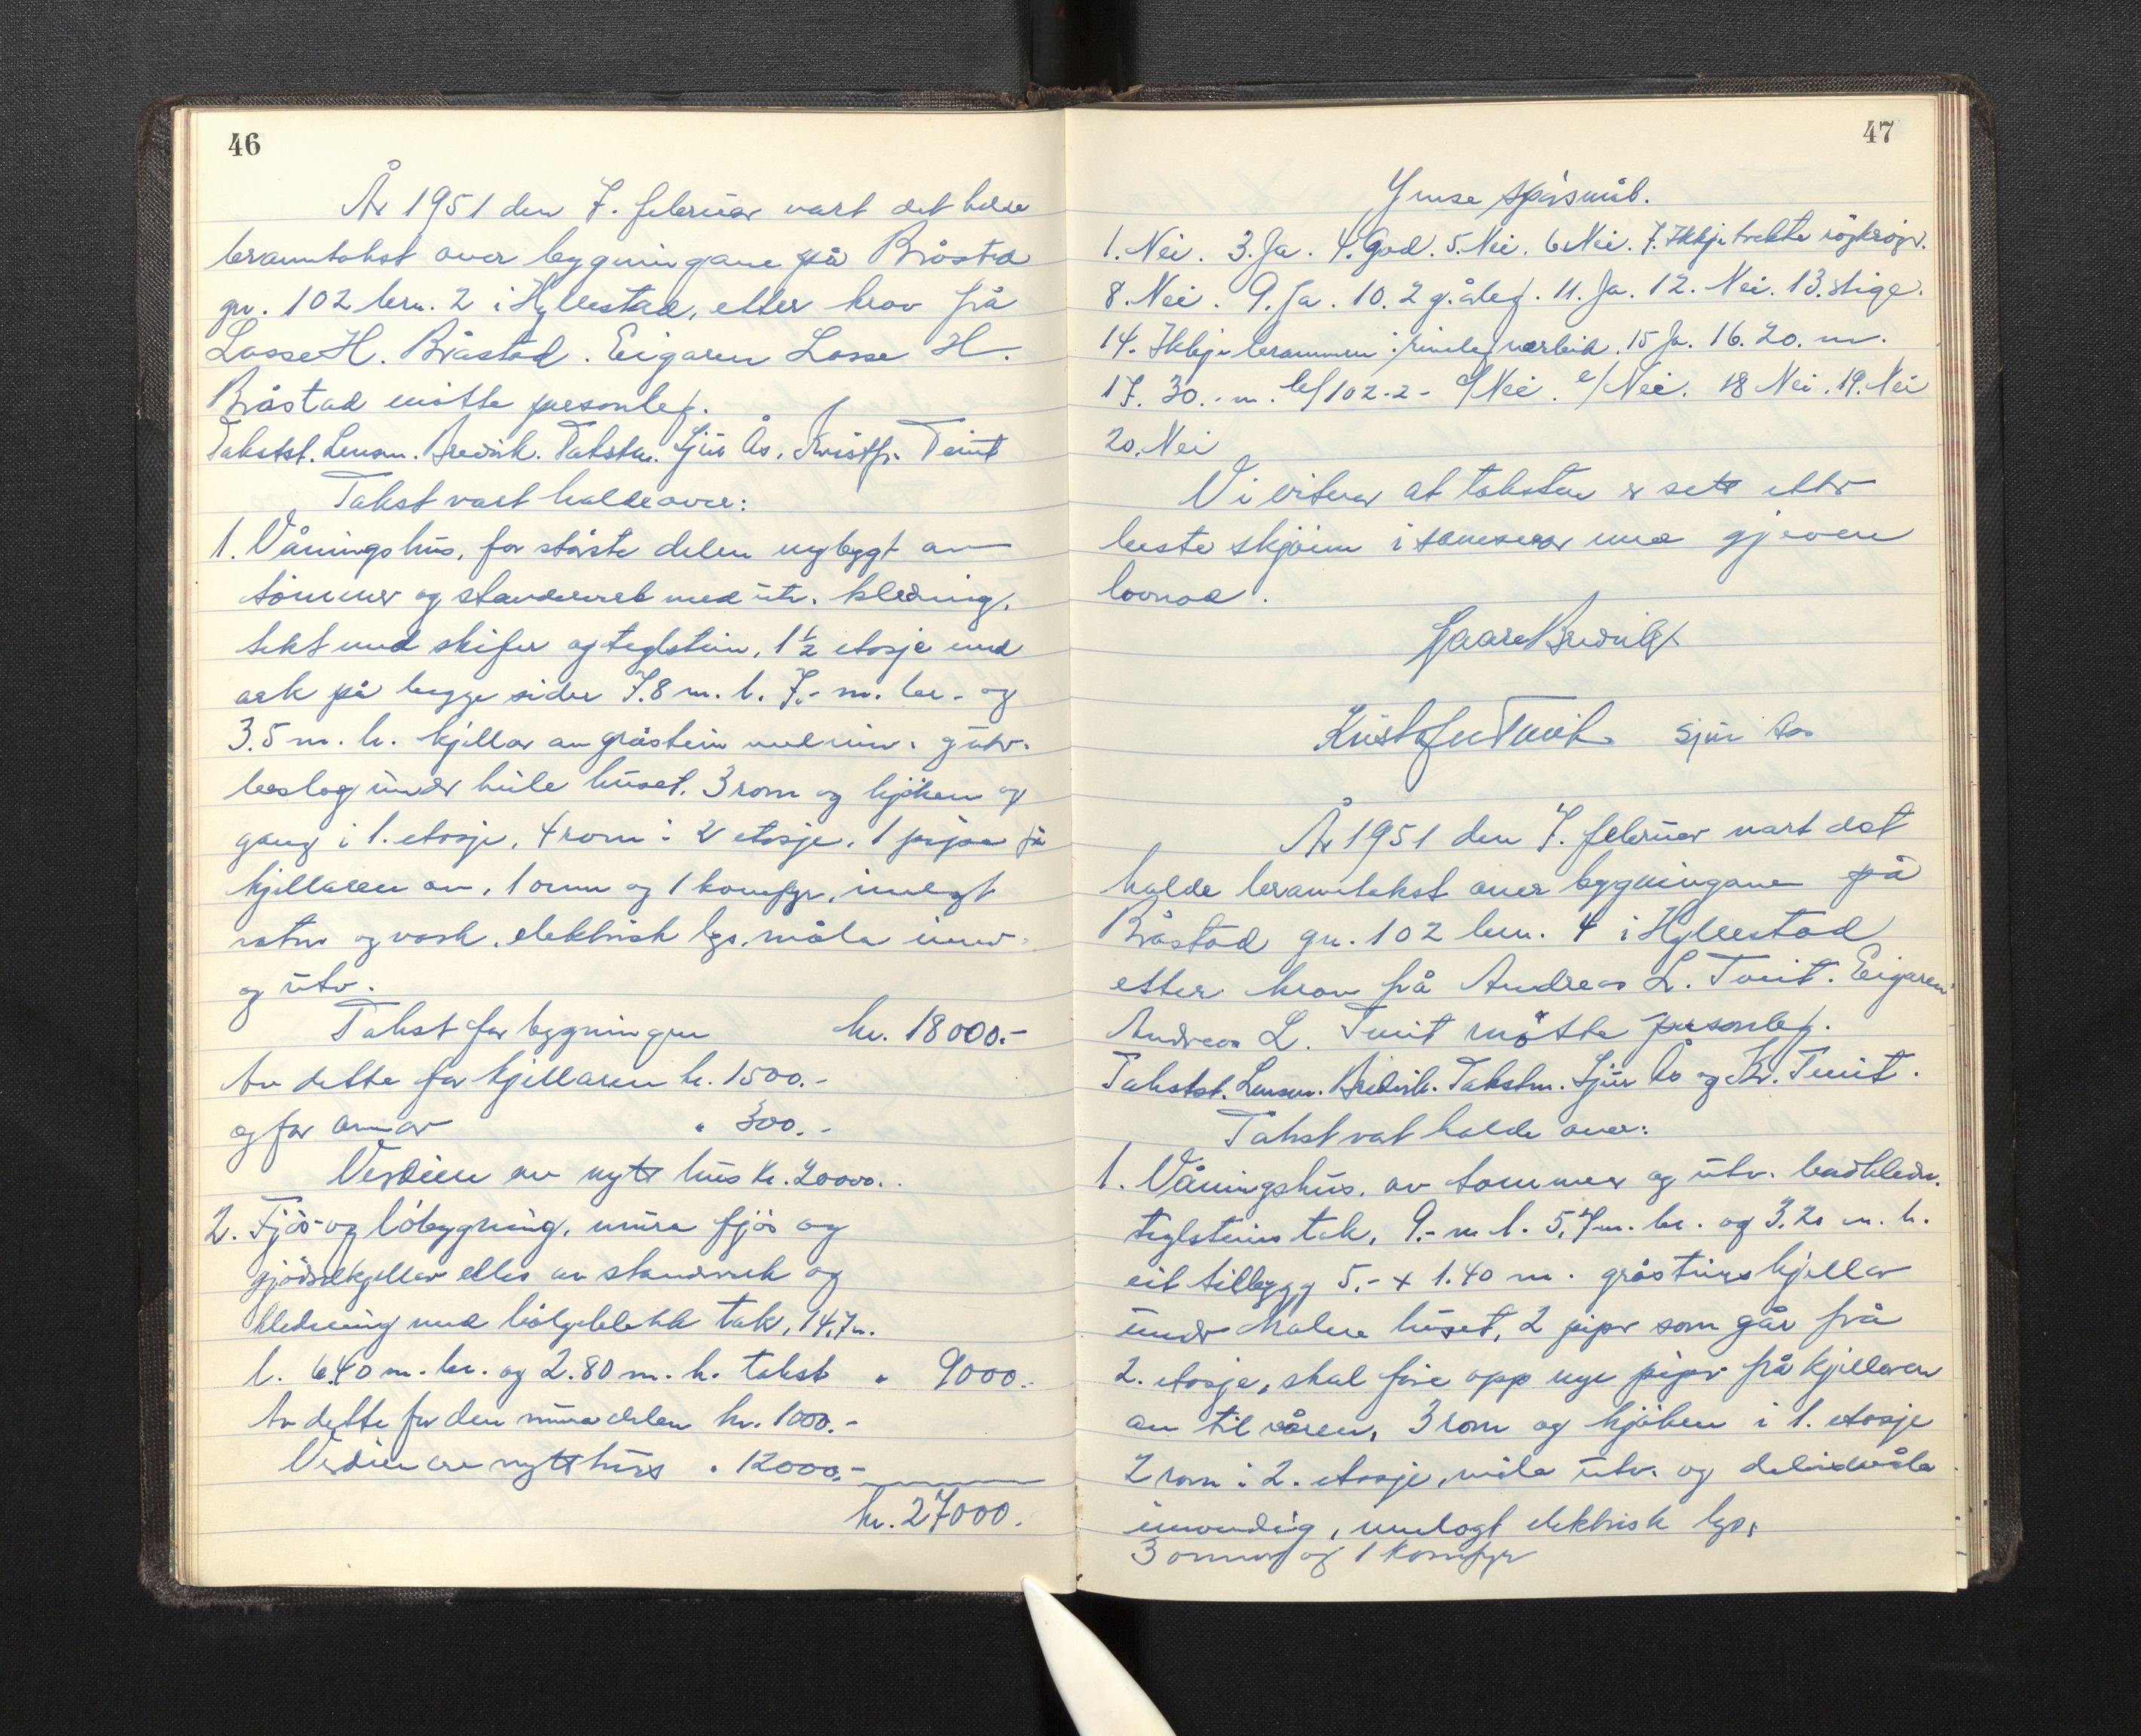 46
År 1951 den 7. februar vart det halde
branntakst over bygningane på Bråstad
gr. 102 brn. 2 i Hyllestad, etter krav frå
Lasse H. Bråstad. Eigaren Lasse H.
Bråstad møtte personleg.
Takstst. Lensm. Bredvik. Takstm. Sjur Ås, Kristfr. Tveit
Takst vart halde over:
1. Våningshus, for største delen nybygt av
tømmer og standverk med utv. kledning,
tekt med skifer og teglstein, 1½ etasje med
ark på begge sider 7.8 m. l. 7.- m. br. og
3.5 m. h. kjellar av gråstein med innv. g utv.
beslag under heile huset. 3 rom og kjøken og
gang i 1. etasje, 4 rom i 2 etasje. 1 pipe frå
kjellaren av, 1 omn og 1 komfyr, innlagt
vatn og vask, elektrisk lys. måla innv.
og utv.
Takst for bygningen kr. 18000.-
Av dette for kjellaren kr. 1500.-
og for omnar " 300.-
Verdien av nytt hus kr. 20000..
2. Fjøs- og løbygning, mura fjøs og
gjødselkjellar elles av standverk og
kledning med bølgeblekk tak, 14,7 m.
l. 6.40 m. br. og 2.80 m. h. takst " 9000.-
Av dette for den mura delen kr. 1000.-
Verdien av nytt hus " 12000.-
kr. 27000.
47
Ymse spørsmål.
1. Nei. 3. Ja. 4. God. 5. Nei. 6. Nei. 7. Ikkje trekte røykrøyr.
8. Nei. 9. Ja. 10. 2 g. årleg. 11. Ja. 12. Nei. 13. stige.
14. Ikkje brannmur i rimeleg nærleik. 15 Ja. 16. 20. m.
17. 30. m. b/102-2- d/Nei. e/Nei. 18 Nei. 19. Nei
20. Nei
Vi vitnar at taksten er sett etter
beste skjøn i samsvar med gjeven
lovnad.
Kaare Bredvik
Kristofer Tveit Sjur Ås
År 1951 den 7. februar vart det
halde branntakst over bygningane på
Bråstad gr. 102 brn. 4 i Hyllestad
etter krav frå Andreas L. Tveit. Eigaren
Andreas L. Tveit møtte personleg.
Takstst. Lensm. Bredvik. Takstm. Sjur Ås og Kr. Tveit.
Takst vat halde over:
1. Våningshus. av tømmer og utv. bordkledn.
teglsteins tak, 9.- m l. 5,7 m. br. og 3.20 m. h.
eit tilbygg 5.- x 1.40 m. gråsteins kjellar
under halve huset, 2 piper som går frå
2. etasje, skal føre opp nye piper frå kjellaren
av til våren, 3 rom og kjøken i 1. etasje
2 rom i 2. etasje, måla utv. og delvis måla
innvendig, innlagt elektrisk lys,
3 omnar og 1 komfyr